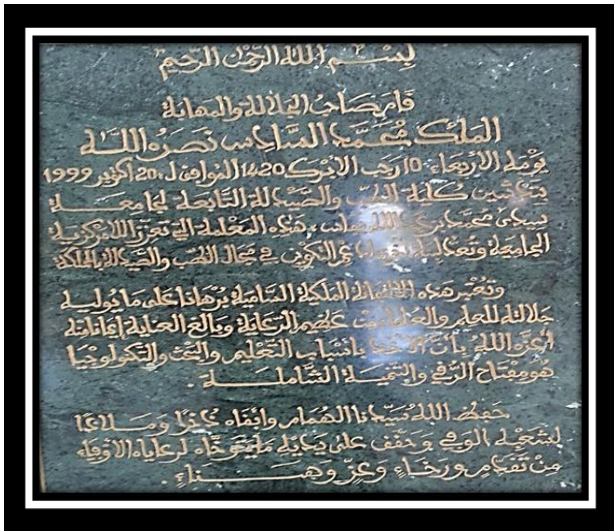 بسم الله الرحمن الرحيم
قام صاحب الجلالة والمهابة
الملك محمد السادس نصره الله
يومه الأربعاء 10 رجب الأبرك 1420 الموافق ل 20 أكتوبر 1999
بتدشين كلية الطب والصيدلة التابعة لجامعة
سيدي محمد بن عبد الله بفاس، هذه المعلمة التي تعزز اللامركزية
الجامعية في مجال الطب والصيدلة بالمملكة
وتعتبر هذه الملكية السامية برهانا على ما يوليه
جلالته للعلم والعلماء من عظيم الرعاية وبالغ العناية إيمانا منه
أعزه الله بأن الأخذ بأسباب التعليم والبحث والتكنولوجيا
هو مفتاح الرقي والتنمية الشاملة.
حفظ الله سيدنا الهمام وأبقاه ذخرا وملاذا
لشعبه الوفي وحقق على يديه ما يتوخاه لرعاياه الأوفياء
من تقدم ورخاء وعز وهناء.